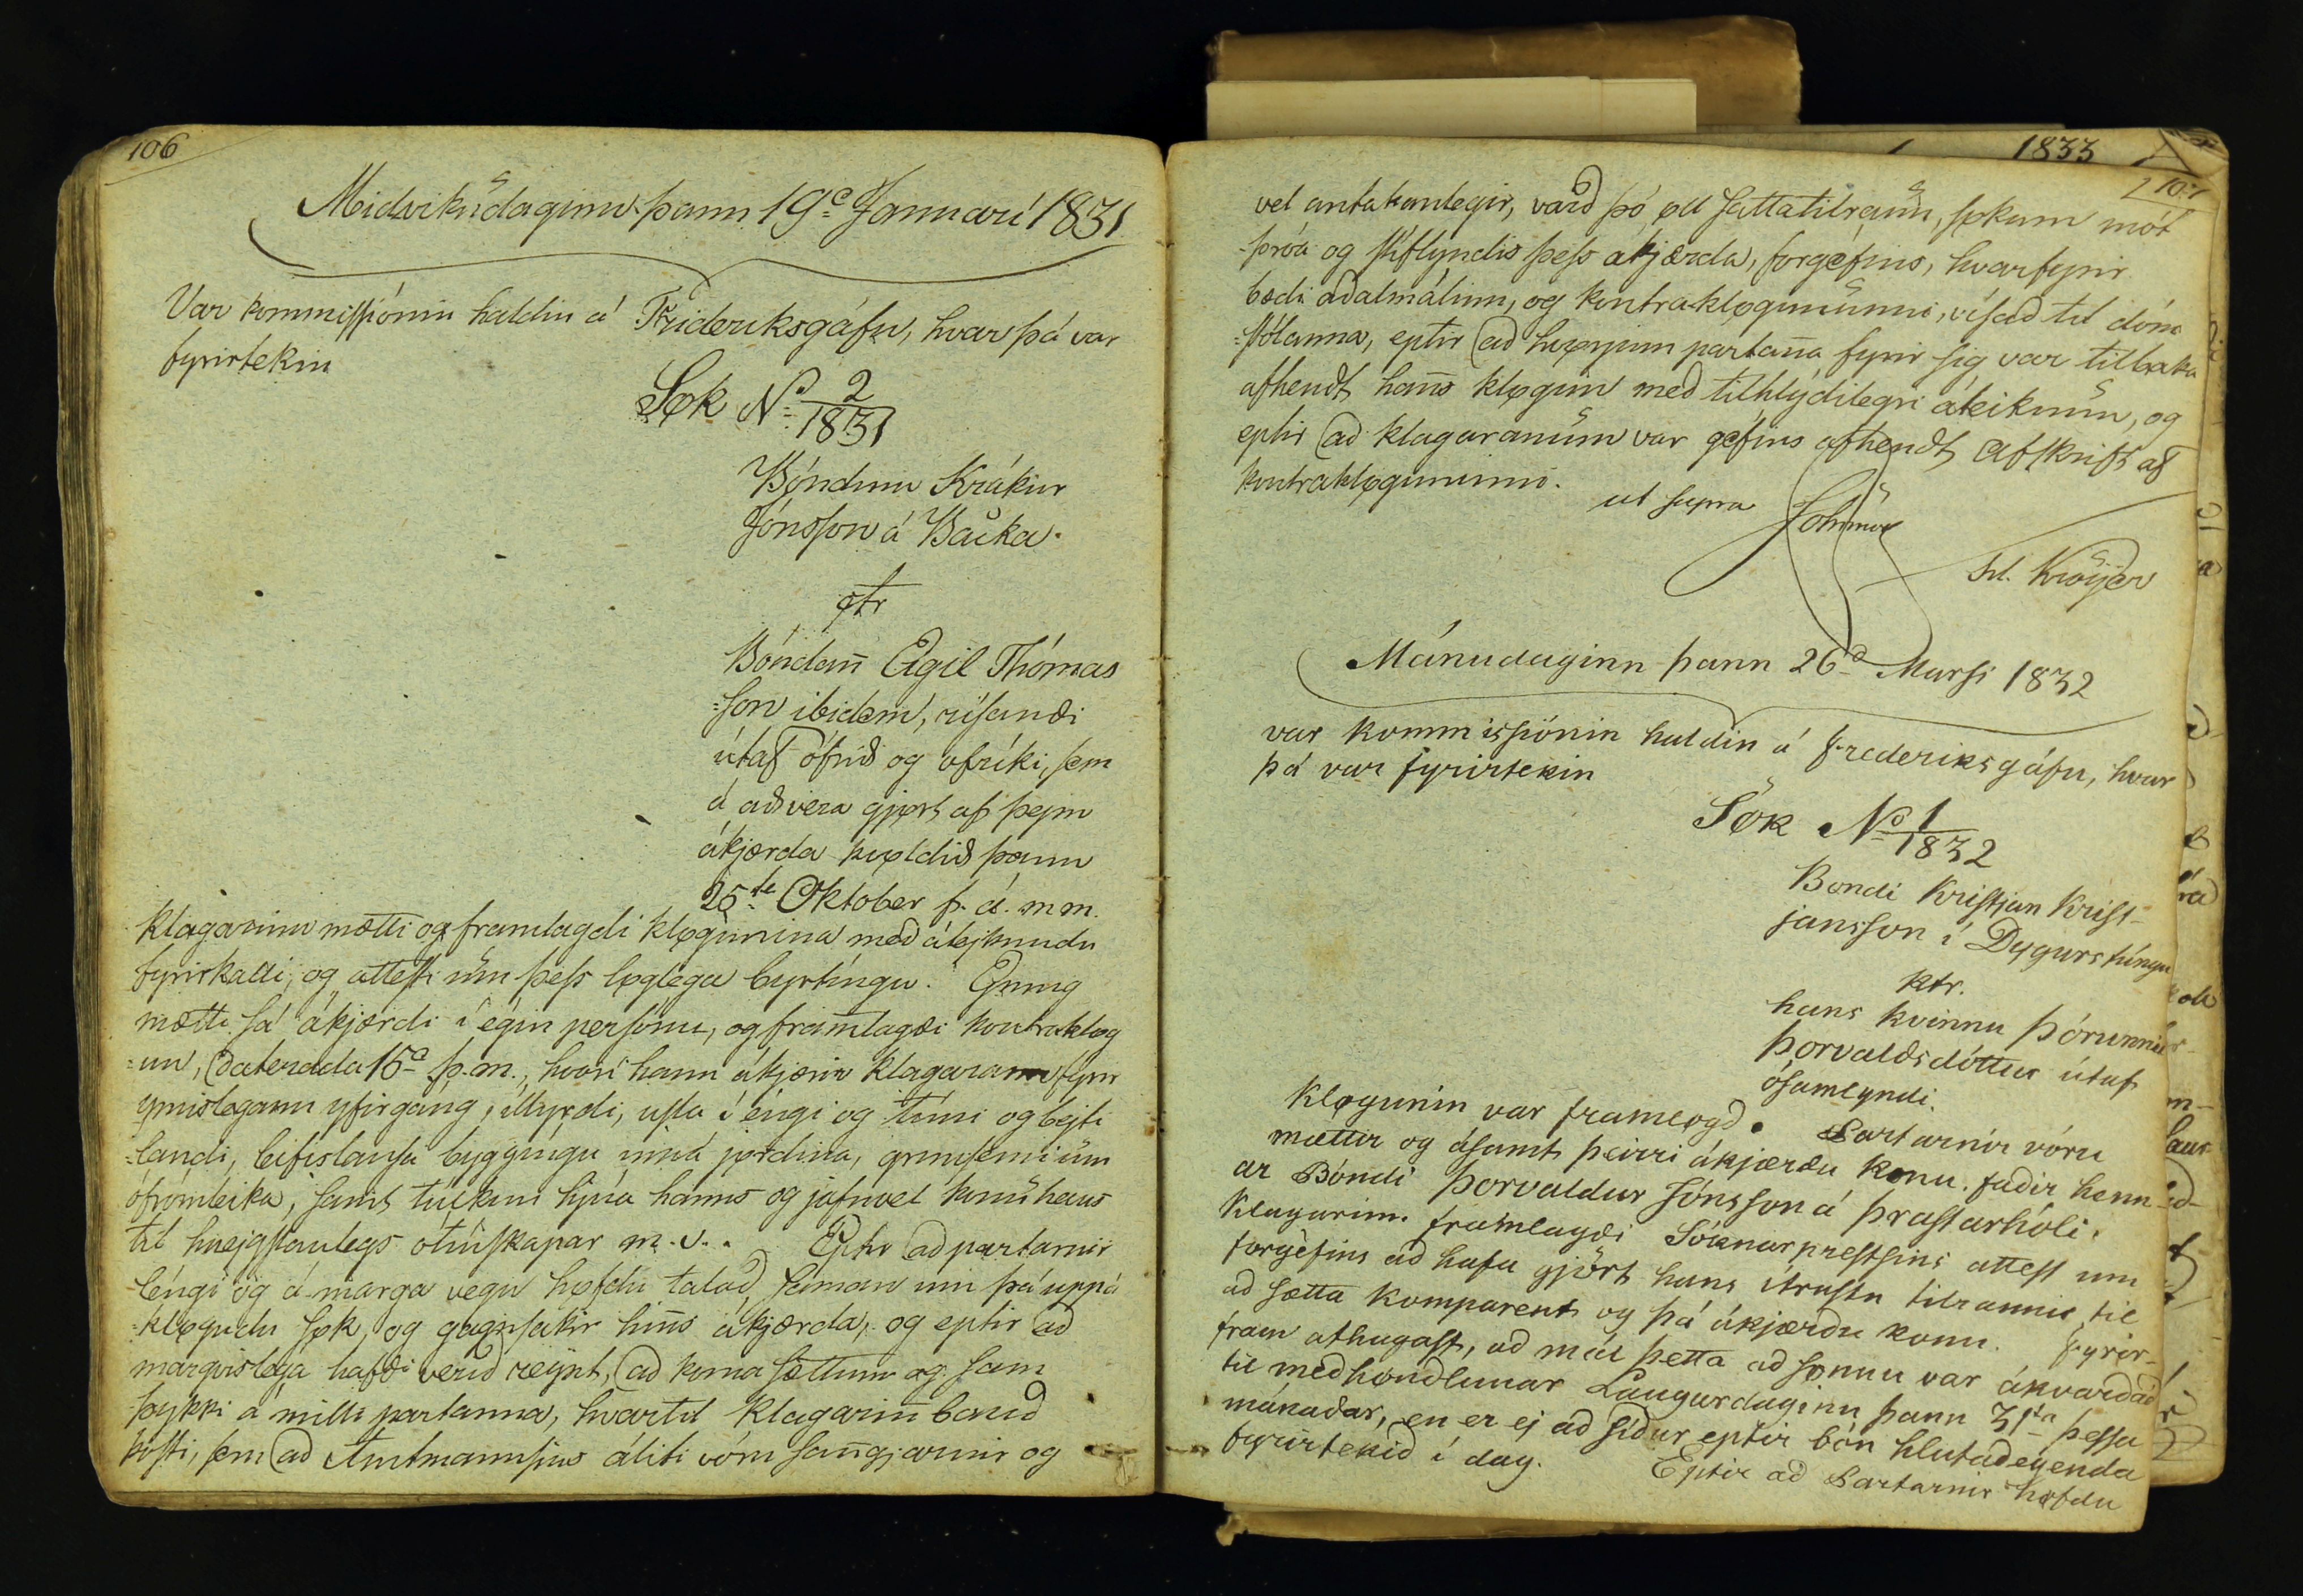 106
Midvikudaginn þann 19e Januarí 1831
Var kommissiónin haldin á Frideriksgáfu, hvar þá var
fyrirtekin
Søk No 2/1831
Bóndinn Krákur
Jónsson á Backa
ctr
Bóndan̄ Egil Thómas
=son ibidem, rísandi
útaf ófrið og ofríki, sem
á að vera gjørt af þejm
ákjærda kvøldið þann
25te Oktober f. á. m m.
Klagarinn mætti og framlagdi kløgunina með átejknudu
fyrirkalli, og attesti um þess løglega byrtíngu. Einnig
mætti sá ákjærdi í egin persónu, og framlagði kontrakløg
=un, daterada 15d þ. m., hvarí hann ákjærir klagarann fyrir
ýmislegann yfirgáng, illyrdi, usla í éngi og túni og bejti
=landi, leifislausa byggingu inná jørdina, grunsemi um
ófrómleika, samt tückun hjúa hanns og jafnvel konu hans
til hnejgslanlegs ótuckskapar m. v.. Eptir að partarnir
léngi og á marga vegu høfdu talað saman um þá uppá
=kløgudu søk, og gagnsakir hin̄s ákjærda, og eptir að
margvislega hafði verið reynt, að koma sættum og sam
=þykki á milli partanna, hvartil klagarin̄ bauð
kosti, sem að Amtmannsins áliti vóru san̄gjarnir og
1833
107
vel antakanlegir, varð þó øll sáttatilraun, søkum mót
=þróa og stiflyndis þess ákjærda, forgéfins, hvarfyrir
bædi aðalmálinu, og kontrakløguninni, vísað til dóm
=stólanna, eptir að hvørjum partan̄a fyrir sig var tilbaka
afhendt han̄s kløgun með tilhlýdilegri áteiknun, og
eptir að klagaranum var géfins afhendt afskrift af
kontrakløguninni.
ut supra
Johnsson
H. Kröyer
Mánudaginn þann 26d Marsi 1832
var kommissiónin haldin á Frederiksgáfu, hvar
þá var fyrirtekin
Sök No 1/1832
Bondi Kristjan Krist-
jansson í Dygurstúngu
ktr.
hans kvinnu Þórunni
Þorvaldsdóttur útaf
ósamlyndi.
Kløgunin var framløgd. Partarnir vóru
mættir og ásamt þeirri ákjærdu konu. faðir henn-
ar Bóndi Þorvaldur Jónsson á Þrastarhóli.
Klagarinn framlagði Sóknarprestsins attest um
forgéfins að hafa gjört hans ítrustu tilraunir til
að sætta komparent og þá ákjærðu konu. Fyrir-
fram athugast, að mál þetta að sønnu var ákvarðað
til medhøndlunar Laugardaginn þann 31ta þessa
mánaðar, en er ej að síður eptir bón hlutaðegenda
fyrirtekið í dag. Eptir að Partarnir høfdu